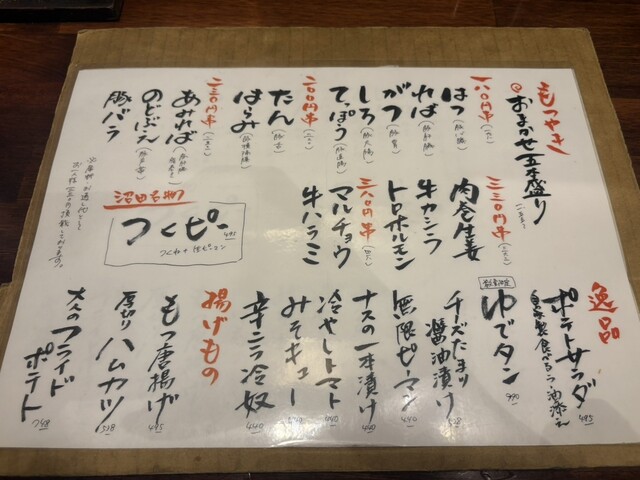 もつやき
おまかせ五本盛り
一八〇円串
はつ（豚心臓）
れば（豚肝臓）
がつ（豚胃）
しろ（豚大腸）
てっぽう（豚直腸）
二〇〇円串
たん（豚舌）
はらみ（豚横隔膜）
二三〇円串
あみれば
のどぶえ
豚バラ
三三〇円串
肉巻生姜
牛カシラ
トロホルモン
三八〇円串
マルチョウ
牛ハラミ
沼田名物
つくピー 495
つくね＋生ピーマン
逸品
ポテトサラダ 495
自家製食べるラー油添え
数量限定
ゆでタン 990
チーズたまり醤油漬け 528
無限ピーマン 440
ナスの一本漬け 440
冷やしトマト 440
みそキュー
辛ニラ冷奴 440
揚げもの
もつ唐揚げ 495
厚切りハムカツ 528
大人のフライドポテト 748